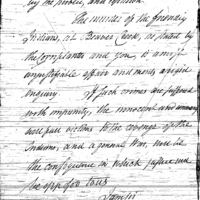 by the public, and
The murder of the friendly
Indians, at Beaver Creek, as stated by
the Complainants and you, is a most
unjustifiable affair and merits a rigid
enquiry. If such crimes are suffered
with impunity, the innocent
will fall victims to the revenge of the
Indians, and a general War, must be
the consequence in which
be
I am Sir